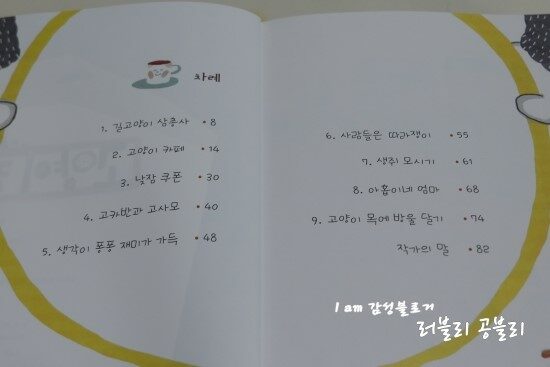 차례
1. 길고양이 상릉사 • 8
2. 고양이 카페 • 14
3. 낯장 쿠폰 • 30
4. 고카반과 고사모 • 40
5. 생각이 퐁퐁 재미가 가득 • 48
6. 사람들은 따라쟁이 • 55
7. 생쥐 모시기 • 61
8. 아홉이네 엄마 • 68
9. 고양이 목에 방울 달기 • 74
작가의 말 • 82
I am 감성블로거
러블리 공블리